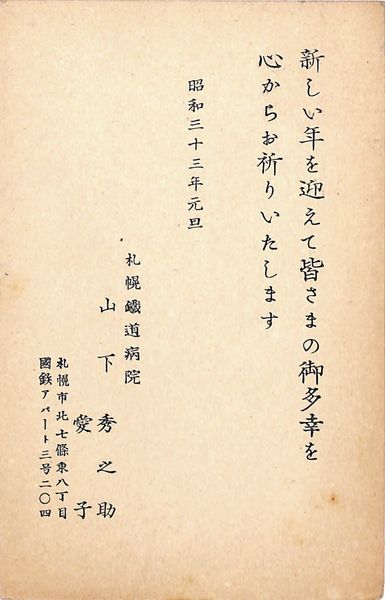 新しい年を迎えて皆さまの御多幸を
心からお祈りいたします
昭和三十三年元旦
札幌鐵道病院
山下秀之助
愛子
札幌市北七條東八丁目
國鉄アパート三号二〇四